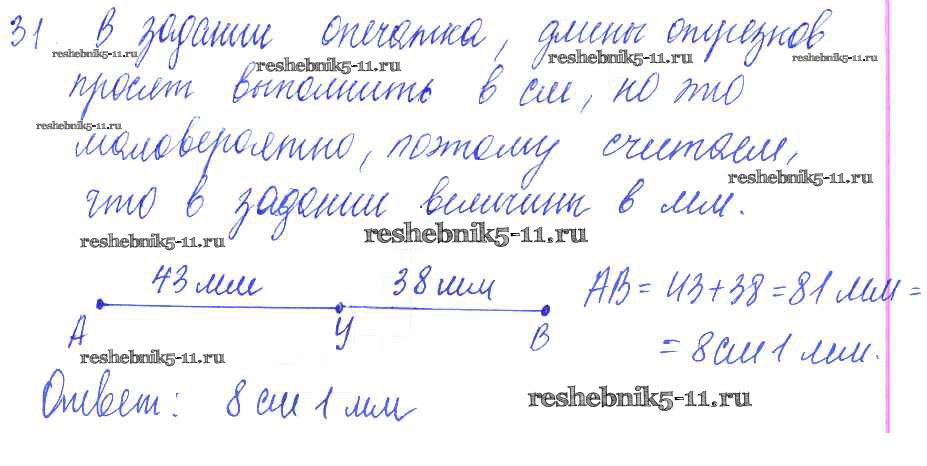 31. В задании опечатка, длины отрезков
reshebnik5-11.ru reshebnik5-11.ru reshebnik5-11.ru reshebnik5-11.ru
просят выполнить в см, но это
reshebnik5-11.ru
маловероятно, поэтому считаем,
reshebnik5-11.ru
что в задании величины в мм.
reshebnik5-11.ru reshebnik5-11.ru
43 мм 38 мм AB = 43 + 38 = 81 мм =
А У В = 8 см 1 мм.
reshebnik5-11.ru
Ответ: 8 см 1 мм
reshebnik5-11.ru